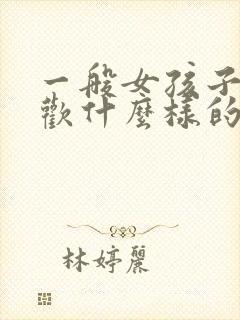 一般女孩子
歡什麼樣的
林婷麗